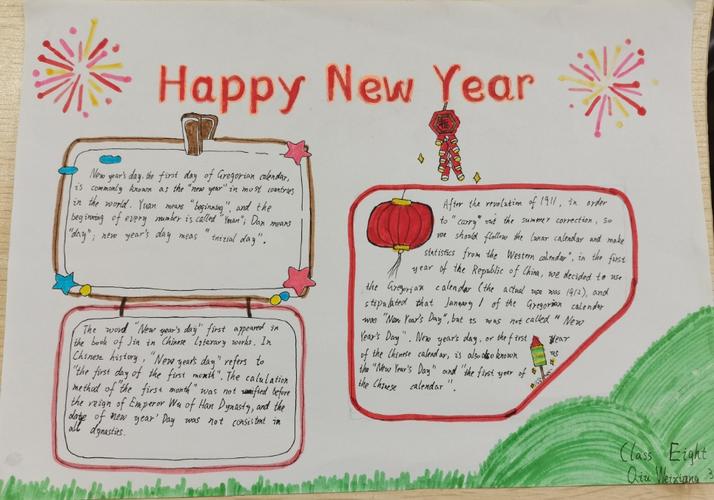 Happy New Year
New year's day, the first day of Gregorian calendar,
is commonly known as the "new year" in most countries
in the world. Yuan means "beginning", and the
beginning of every number is called "Yuan"; Dan means
"day"; new year's day meas "initial day".
The word "New year's day" first appeared in
the book of Jin in Chinese literary works. In
Chinese history, "New year's day" refers to
"the first day of the first month". The calculation
method of "the first month" was not unified before
the reign of Emperor Wu of Han Dynasty, and the
date of new year' Day was not consistent in
all dynasties.
After the revolution of 1911, in order
to "carry" out the summer correction, so
we should follow the lunar calendar and make
statistics from the Western calendar", in the first
year of the Republic of China, we decided to use
the Gregorian calendar (the actual use was 1912), and
stipulated that January 1 of the Gregorian calendar
was "New Year's Day", but it was not called "New
Year's Day". New year's day, or the first year
of the Chinese calendar, is also known as
the "New Year's Day" and "the first year of
the Chinese calendar".
Class Eight
Qiu Weixiang